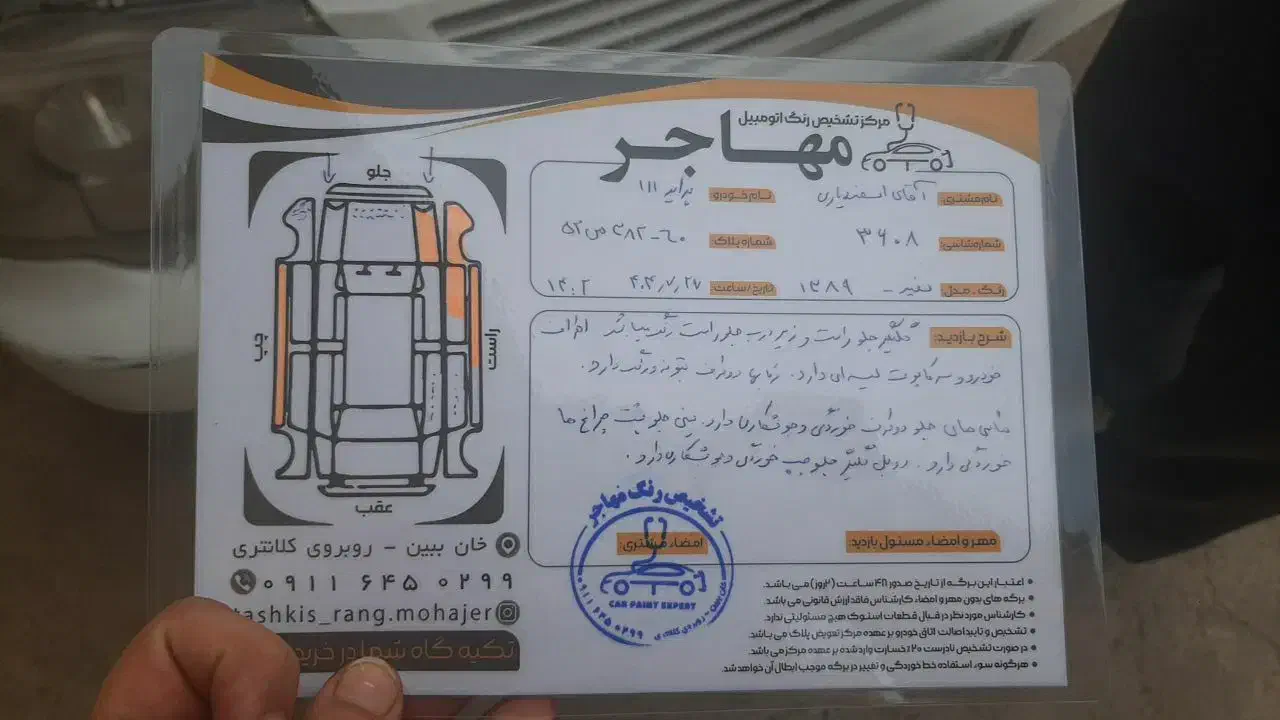 مرکز تشخیص رنگ اتومبیل
مهاجر
نام مشتری: آقای اسفندیاری
نام خودرو: پراید ۱۱۱
شماره شاسی: ۳۶۰۸
شماره پلاک: ۶۰-۳۸۲ ص ۵۲
رنگ - مدل: سفید - ۱۳۸۹
تاریخ / ساعت: ۴۰۴/۷/۲۷ ۱۴:۰۲
شرح بازدید: گلگیر جلو راست و زیر درب جلو راست رنگ میباشد اطراف
خودرو و سر کاپوت لیسه ای دارد. رکابها دوطرف بتونه و رنگ دارد.
شاسی های جلو دوطرف خوردگی و جوشکاری دارد. سینی جلو پشت چراغ ها
خوردگی دارد. دوبل گلگیر جلو چپ خوردگی و جوشکاری دارد.
مهر و امضاء مسئول بازدید:
امضاء مشتری:
تشخیص رنگ مهاجر
CAR PAINT EXPERT
۰۹۱۱ ۶۴۵ ۰۲۹۹
جلو
چپ
راست
عقب
خان ببین - روبروی کلانتری
۰۹۱۱ ۶۴۵ ۰۲۹۹
tashkis_rang.mohajer
تکیه گاه شما در خرید
اعتبار این برگه از تاریخ صدور ۴۸ ساعت (۲روز) می باشد.
برگه های بدون مهر و امضاء کارشناس فاقد ارزش قانونی می باشد.
کارشناس مورد نظر در قبال قطعات استوک هیچ مسئولیتی ندارد.
تشخیص و تایید اصالت اتاق خودرو بر عهده مرکز تعویض پلاک می باشد.
در صورت تشخیص نادرست ۲۰٪ خسارت وارد شده بر عهده مرکز می باشد.
هرگونه سوء استفاده خط خوردگی و تغییر در برگه موجب ابطال آن خواهد شد.